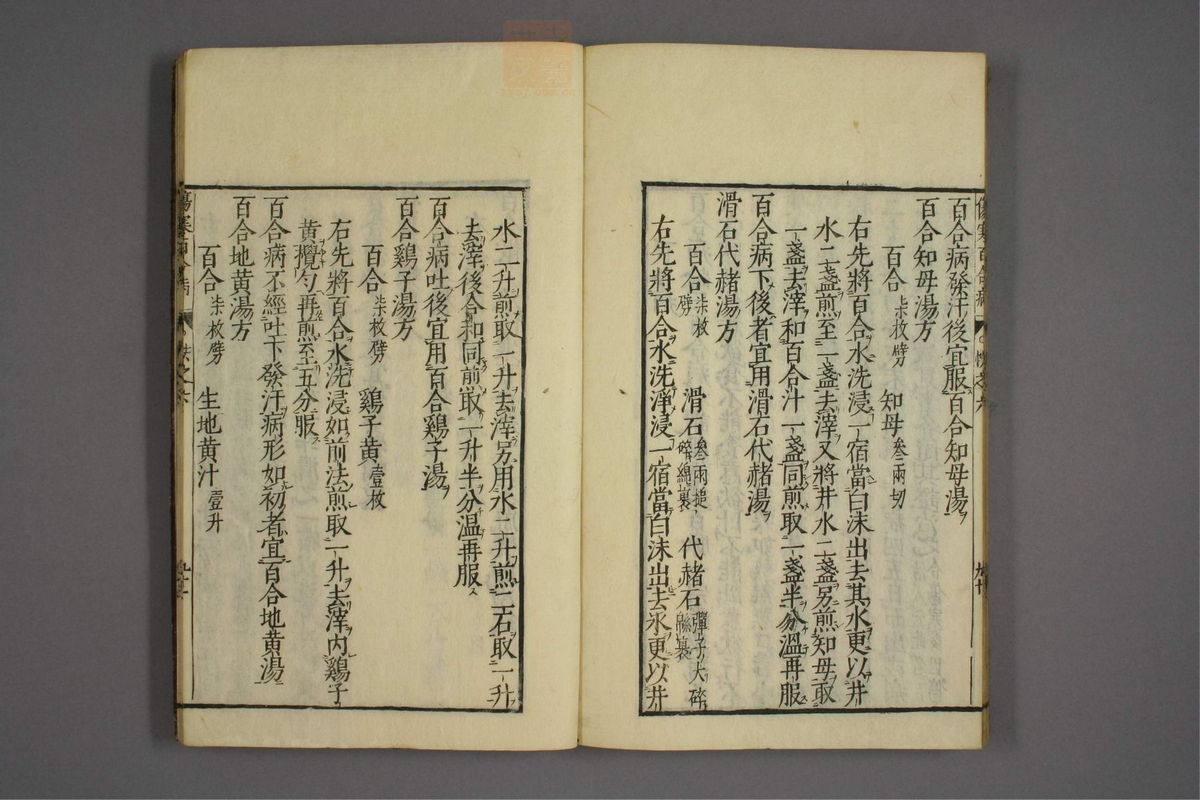 百合病發汗後宜服百合知母湯
百合知母湯方
百合柒枚劈 知母叁兩切
右先將百合水洗浸一宿當白沫出去其水更以井
水二盞煎至一盞去滓又將井水二盞另煎知母取
一盞去滓和百合汁一盞同煎取一盞半分溫再服
百合病下後者宜用滑石代赭湯
滑石代赭湯方
百合柒枚劈 滑石叁兩槌碎綿裹 代赭石彈子大碎綿裹
右先將百合水洗淨浸一宿當白沫出去水更以井
水二升煎取一升去滓另用水二升煎二石取一升
去滓後合和同煎取一升半分溫再服
百合病吐後宜用百合鷄子湯
百合鷄子湯方
百合柒枚劈 鷄子黃壹枚
右先將百合水洗浸如前法煎取一升去滓內鷄子
黃攪勻再煎至五分服
百合病不經吐下發汗病形如初者宜百合地黃湯
百合地黃湯方
百合柒枚劈 生地黃汁壹升